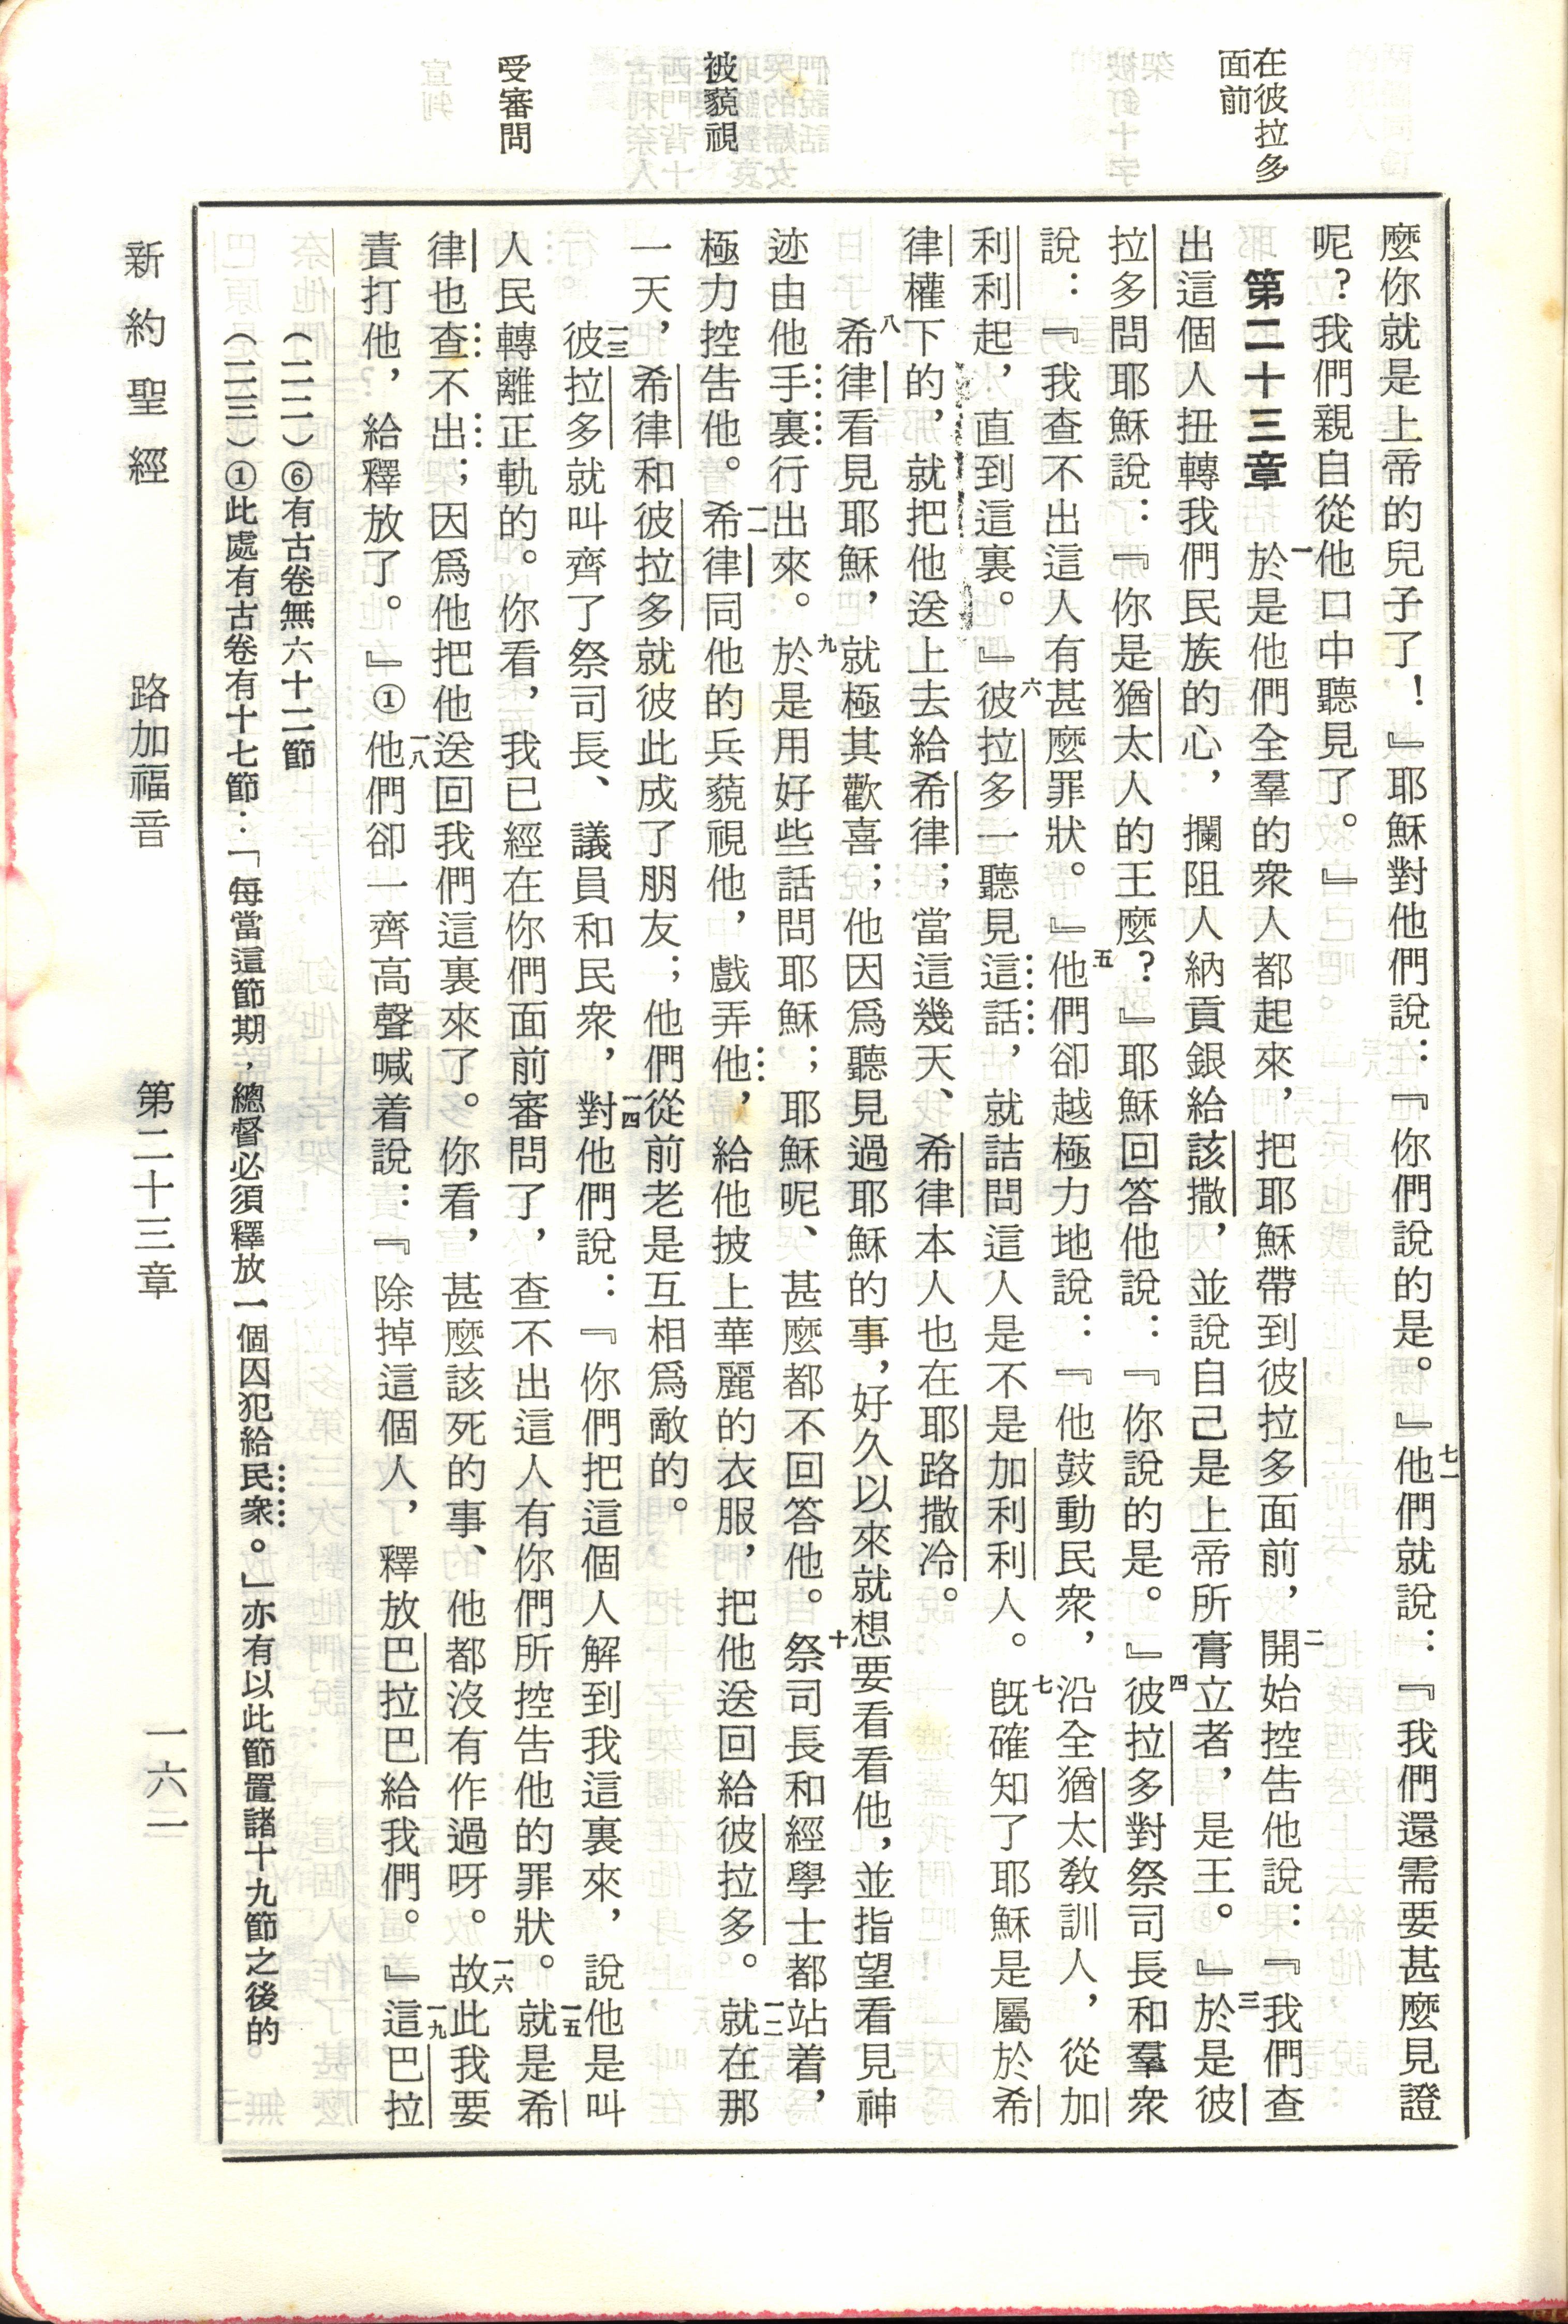 在彼拉多
面前
被藐視
受審問
麼你就是上帝的兒子了！』耶穌對他們說：『你們說的是。』七一他們就說：『我們還需要甚麼見證
呢？我們親自從他口中聽見了。』
第二十三章 一於是他們全羣的衆人都起來，把耶穌帶到彼拉多面前，二開始控告他說：『我們查
出這個人扭轉我們民族的心，攔阻人納貢銀給該撒，並說自己是上帝所膏立者，是王。』三於是彼
拉多問耶穌說：『你是猶太人的王麼？』耶穌回答他說：『你說的是。』四彼拉多對祭司長和羣衆
說：『我查不出這人有甚麼罪狀。』五他們卻越極力地說：『他鼓動民衆，沿全猶太教訓人，從加
利利起，直到這裏。』六彼拉多一聽見這話，就詰問這人是不是加利利人。七旣確知了耶穌是屬於希
律權下的，就把他送上去給希律；當這幾天、希律本人也在耶路撒冷。
八希律看見耶穌，就極其歡喜；他因爲聽見過耶穌的事，好久以來就想要看看他，並指望看見神
迹由他手裏行出來。九於是用好些話問耶穌；耶穌呢、甚麼都不回答他。十祭司長和經學士都站着，
極力控告他。一一希律同他的兵藐視他，戲弄他，給他披上華麗的衣服，把他送回給彼拉多。一二就在那
一天，希律和彼拉多就彼此成了朋友；他們從前老是互相爲敵的。
一三彼拉多就叫齊了祭司長、議員和民衆，一四對他們說：『你們把這個人解到我這裏來，說他是叫
人民轉離正軌的。你看，我已經在你們面前審問了，查不出這人有你們所控告他的罪狀。一五就是希
律也查不出；因爲他把他送回我們這裏來了。你看，甚麼該死的事、他都沒有作過呀。一六故此我要
責打他，給釋放了。』①一八他們卻一齊高聲喊着說：『除掉這個人，釋放巴拉巴給我們。』一九這巴拉
（二二）⑥有古卷無六十二節
（二三）①此處有古卷有十七節：「每當這節期，總督必須釋放一個囚犯給民衆。」亦有以此節置諸十九節之後的
新約聖經
路加福音
第二十三章
一六一